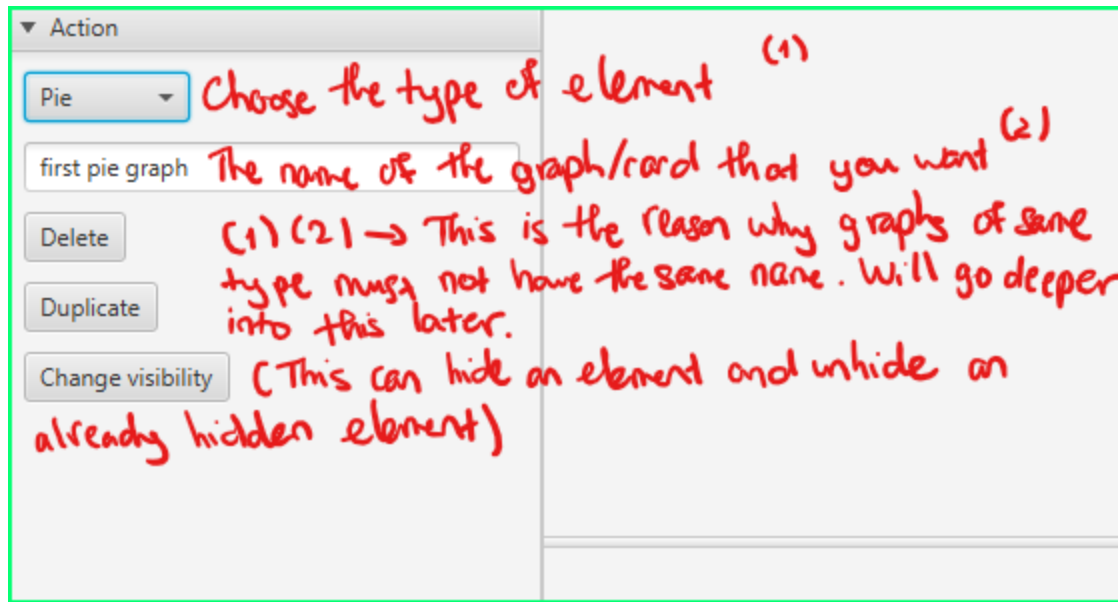 Action
Pie Choose the type of element (1)
first pie graph The name of the graph/card that you want (2)
Delete (1) (2) → This is the reason why graphs of same
type must not have the same name. Will go deeper
Duplicate into this later.
Change visibility (This can hide an element and unhide an
already hidden element)